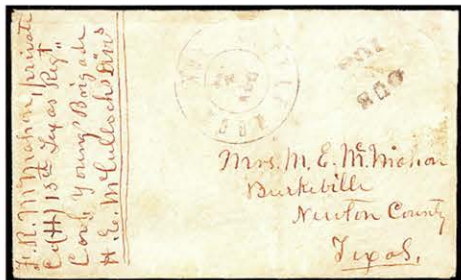 F. R. McMahon, private
Co (H) 15th Texas Regt
Conl Young's Brigade
H. E. McCulloch's Divis
DUE
Mrs. M. E. McMahon
Burkeville
Newton County
Texas.